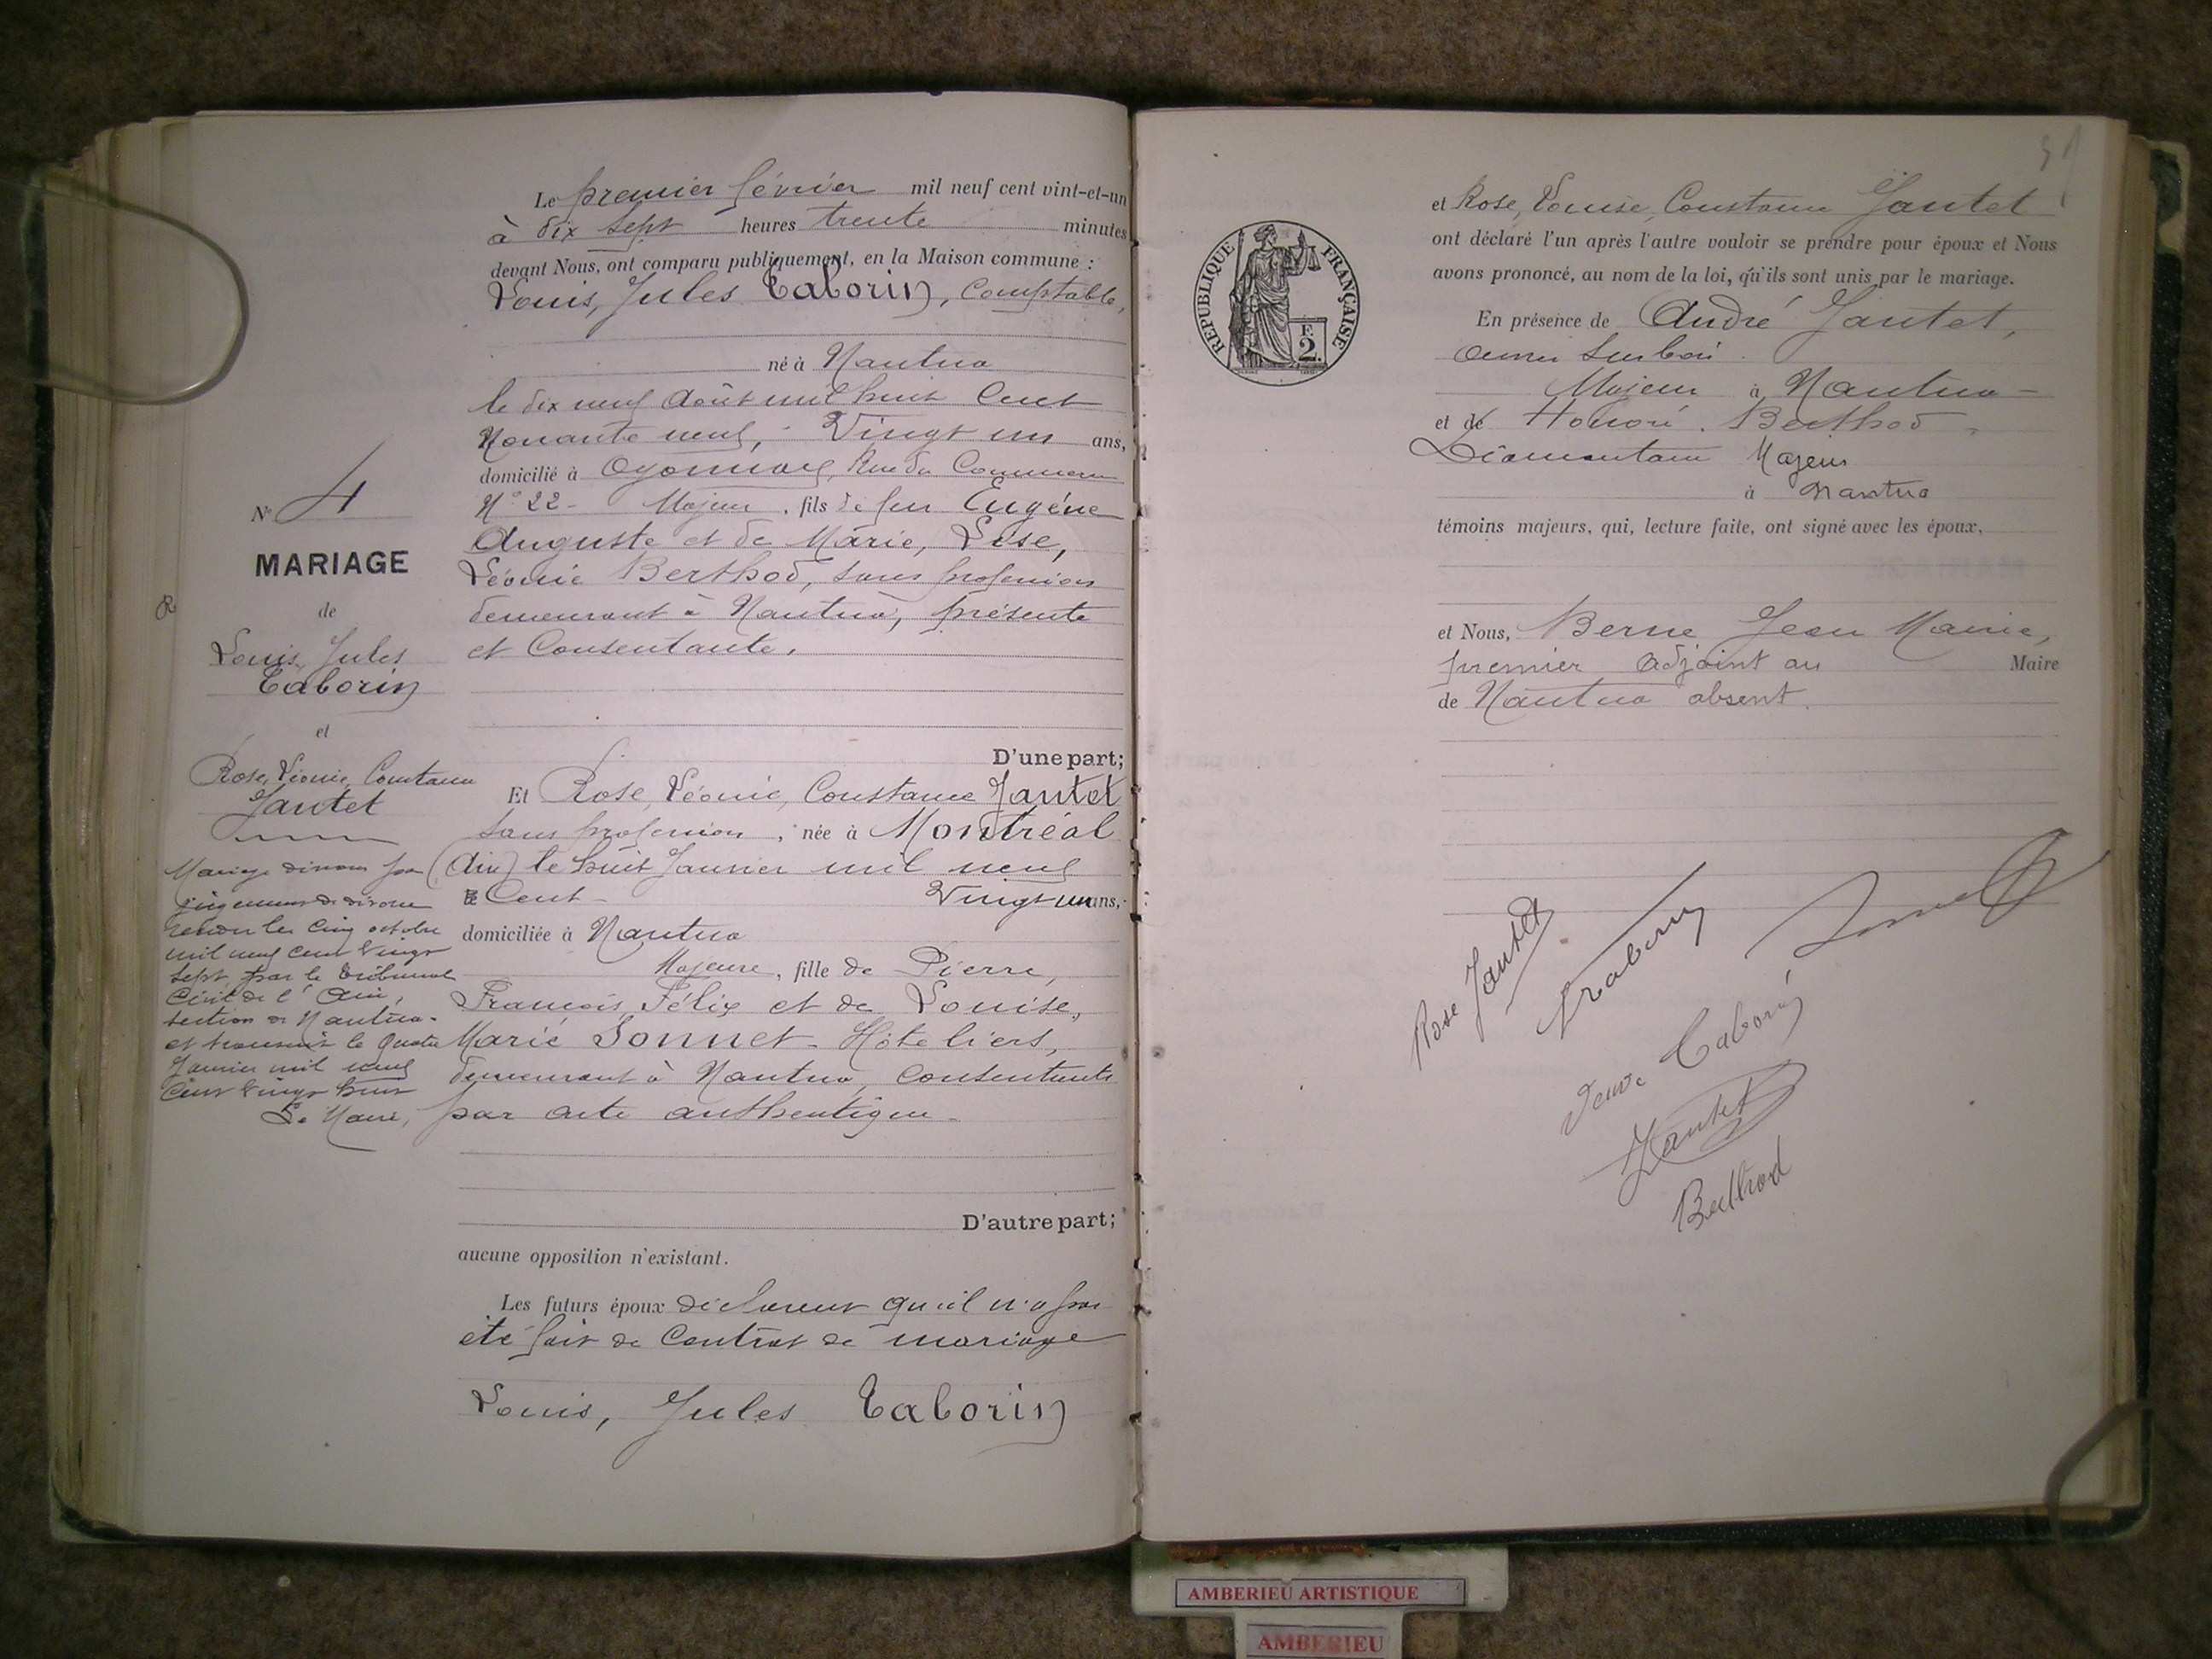 Le premier février mil neuf cent vint-et-un
à dix sept heures trente minutes
devant Nous, ont comparu publiquement, en la Maison commune :
Louis, Jules Taborin, Comptable,
né à Nantua
le dix neuf Août mil huit Cent
Nonante neuf, Vingt un ans,
domicilié à Oyonnax, Rue du Commerce
N° 22 - Majeur, fils de feu Eugéne
Auguste et de Marie, Lise,
Léonie Berthod, sans profession
demeurant à Nantua, présente
et Consentante.
D'une part;
N° 4
MARIAGE
de
Louis, Jules
Taborin
et
Rose, Léonie, Constance
Jantet
Mariage dissous par
jugement de divorce
rendu le cinq octobre
mil neuf cent vingt
sept par le tribunal
Civil de l'Ain,
section de Nantua.
et transcrit le quatre
Janvier mil neuf
cent vingt huit
Le Maire,
Et Rose, Léonie, Constance Jantet
sans profession, née à Montréal
(Ain) le huit Janvier mil neuf
Cent - Vingt un ans,
domiciliée à Nantua
Majeure, fille de Pierre,
François, Félix et de Louise,
Marie Sonnet - Hôteliers,
demeurant à Nantua, consentants
par acte authentique -
D'autre part;
aucune opposition n'existant.
Les futurs époux déclarent qu'il n'a pas
été fait de Contrat de mariage
Louis, Jules Taborin
et Rose, Louise, Constance Jantet
ont déclaré l'un après l'autre vouloir se prendre pour époux et Nous
avons prononcé, au nom de la loi, qu'ils sont unis par le mariage.
En présence de André Jantet,
Majeur à Nantua -
et de Honoré Berthod
Diamantaire Majeur
à Nantua
témoins majeurs, qui, lecture faite, ont signé avec les époux,
et Nous, Berne Jean Marie,
premier adjoint au Maire
de Nantua absent.
RÉPUBLIQUE FRANÇAISE
F.
2.
Rose Jantet
Taborin
Veuve Taborin
Jantet
Berthod
AMBERIEU ARTISTIQUE
AMBERIEU